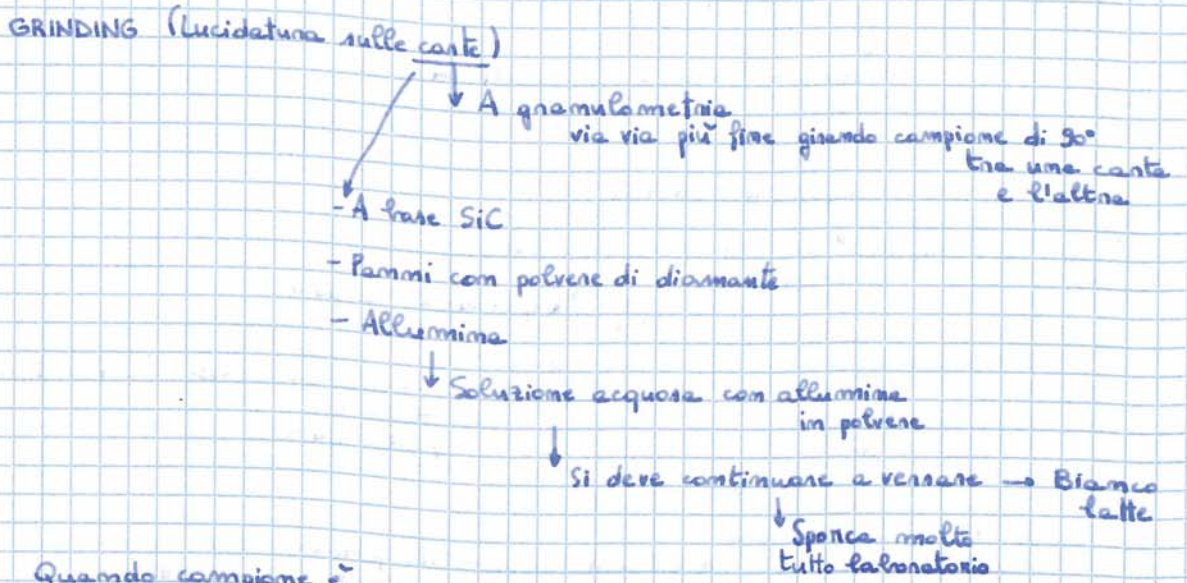 GRINDING (Lucidatura sulle carte)
A granulometria
via via più fine girando campione di 90°
tra una carta
e l'altra
- A base SiC
- Panni con polvere di diamante
- Allumina
Soluzione acquosa con allumina
in polvere
Si deve continuare a versare → Bianco
latte
Sporca molto
tutto laboratorio
Quando campione è